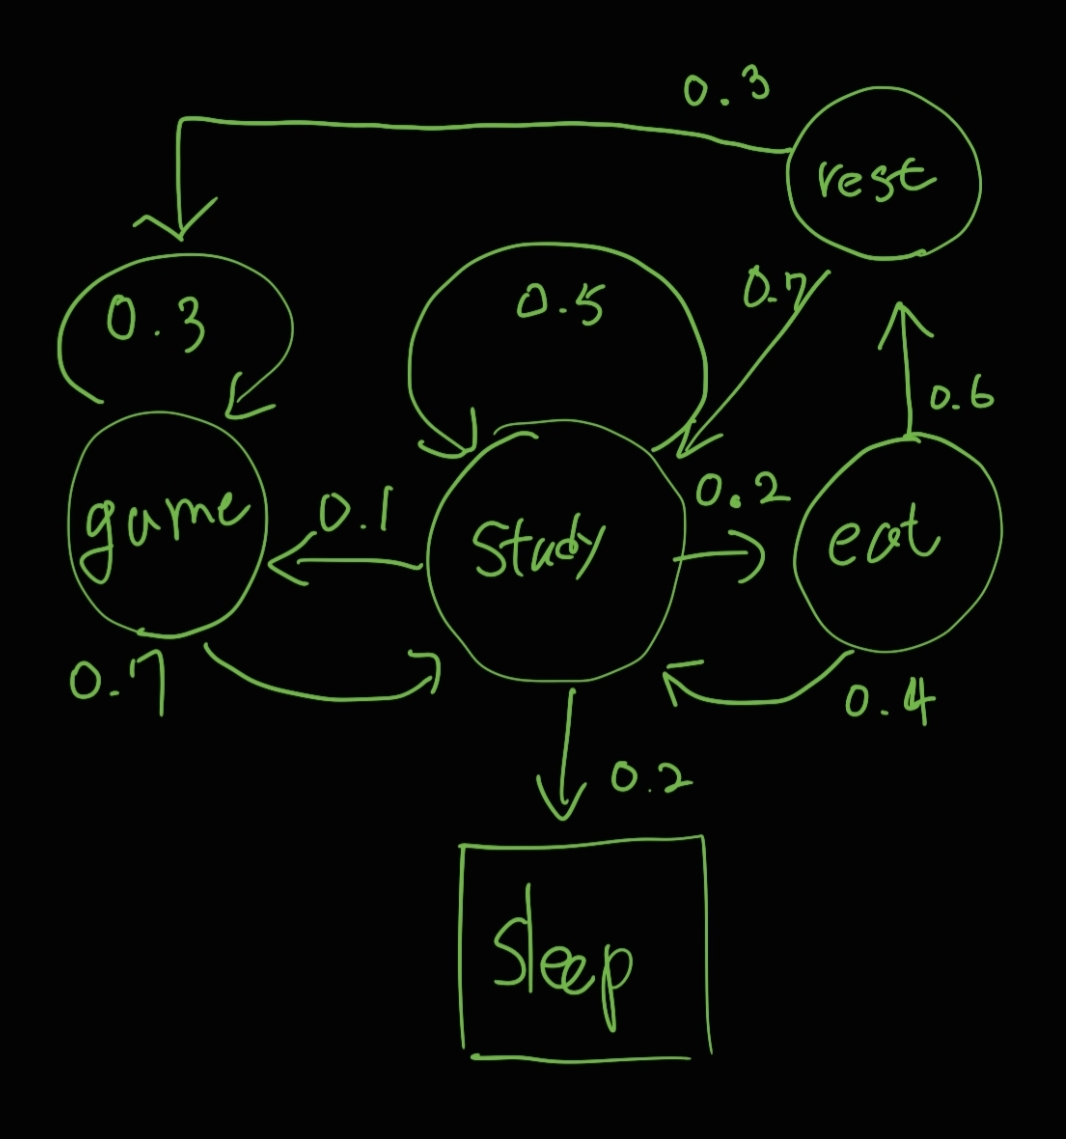 0.3
rest
0.3
0.5
0.7
0.6
game
0.1
study
0.2
eat
0.7
0.4
0.2
Sleep